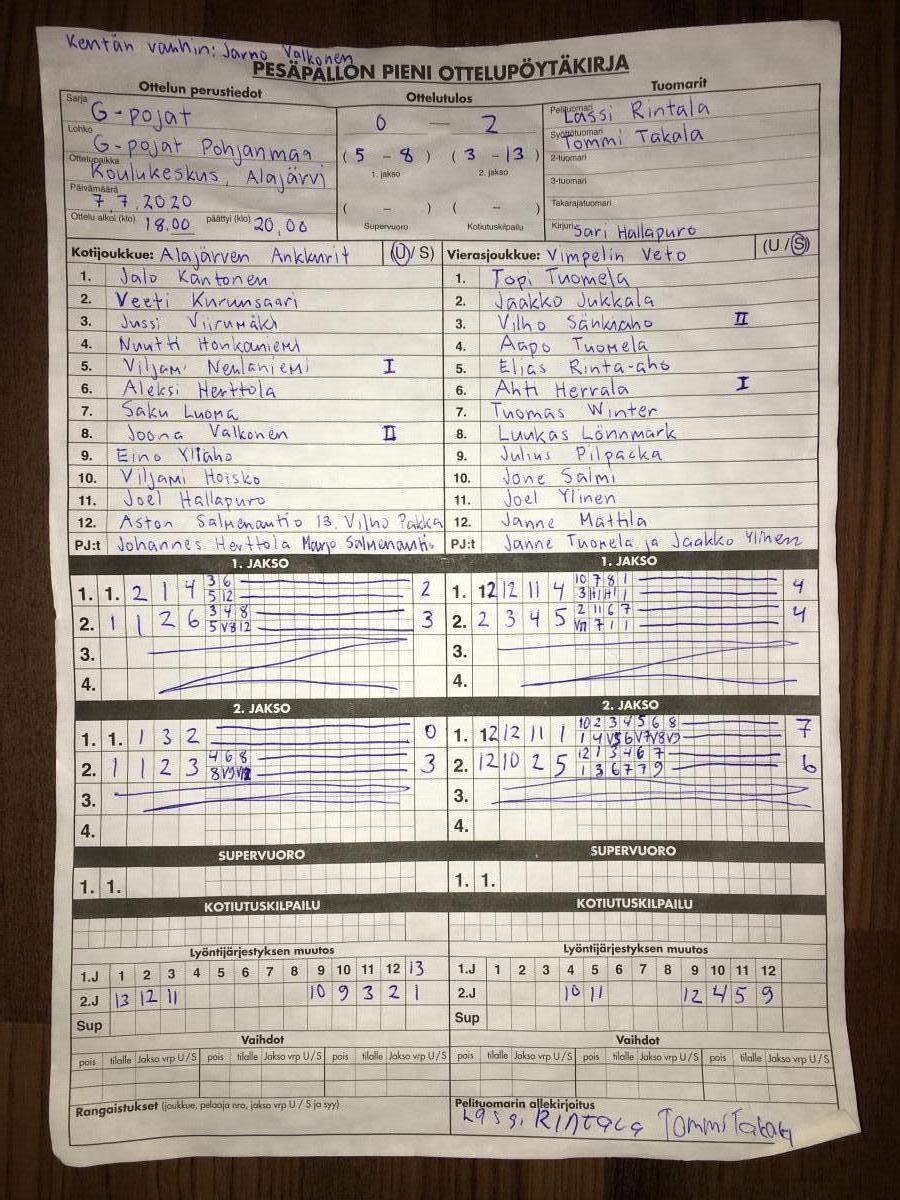 Kentän vanhin: Jarno Valkonen
PESÄPALLON PIENI OTTELUPÖYTÄKIRJA
Ottelun perustiedot
Sarja G-pojat
Lohko G-pojat Pohjanmaa
Ottelupaikka Koulukeskus, Alajärvi
Päivämäärä 7.7.2020
Ottelu alkoi (klo) 18.00 päättyi (klo) 20.00
Ottelutulos
0 — 2
(5 - 8) (3 - 13)
1. jakso 2. jakso
( - ) ( - )
Supervuoro Kotiutuskilpailu
Tuomarit
Pelituomari Lassi Rintala
Syöttötuomari Tommi Takala
2-tuomari
3-tuomari
Takarajatuomari
Kirjuri Sari Hallapuro
Kotijoukkue: Alajärven Ankkurit (U/S)
1. Jalo Kantonen
2. Veeti Kurunsaari
3. Jussi Viirumäki
4. Nuutti Honkaniemi
5. Viljami Neulaniemi I
6. Aleksi Herttola
7. Saku Luoma
8. Joona Valkonen II
9. Eino Yliaho
10. Viljami Hoisko
11. Joel Hallapuro
12. Aston Salmenautio 13. Vilho Pakka
PJ:t Johannes Herttola Marjo Salmenautio
Vierasjoukkue: Vimpelin Veto (U/S)
1. Topi Tuomela
2. Jaakko Jukkala
3. Vilho Sänkiaho II
4. Aapo Tuomela
5. Elias Rinta-aho
6. Ahti Herrala I
7. Tuomas Winter
8. Luukas Lönnmark
9. Julius Pilpacka
10. Jone Salmi
11. Joel Ylinen
12. Janne Mattila
PJ:t Janne Tuomela ja Jaakko Ylinen
1. JAKSO
1. 1. 2 1 4 3 6 2
5 12
2. 1 1 2 6 3 4 8 3
5 V8 12
3.
4.
1. JAKSO
1. 12 12 11 4 10 7 8 1 4
2. 2 3 4 5 2 11 6 7 4
3.
4.
2. JAKSO
1. 1. 1 3 2 0
2. 1 1 2 3 4 6 8 3
3.
4.
2. JAKSO
1. 12 12 11 1 10 2 3 4 5 6 8 7
1 4 V5 6 V7 V8 V9
2. 12 10 2 5 12 1 3 4 6 7 6
1 3 6 7 7 9
3.
4.
SUPERVUORO
1. 1.
SUPERVUORO
1. 1.
KOTIUTUSKILPAILU
KOTIUTUSKILPAILU
Lyöntijärjestyksen muutos
1.J 1 2 3 4 5 6 7 8 9 10 11 12 13
2.J 13 12 11 10 9 3 2 1
Sup
Lyöntijärjestyksen muutos
1.J 1 2 3 4 5 6 7 8 9 10 11 12
2.J 10 11 12 4 5 9
Sup
Vaihdot
pois tilalle Jakso vrp U/S pois tilalle Jakso vrp U/S pois tilalle Jakso vrp U/S
Vaihdot
pois tilalle Jakso vrp U/S pois tilalle Jakso vrp U/S pois tilalle Jakso vrp U/S
Rangaistukset (joukkue, pelaaja nro, jakso vrp U / S ja syy)
Pelituomarin allekirjoitus
Lassi RINTALA Tommi Takala